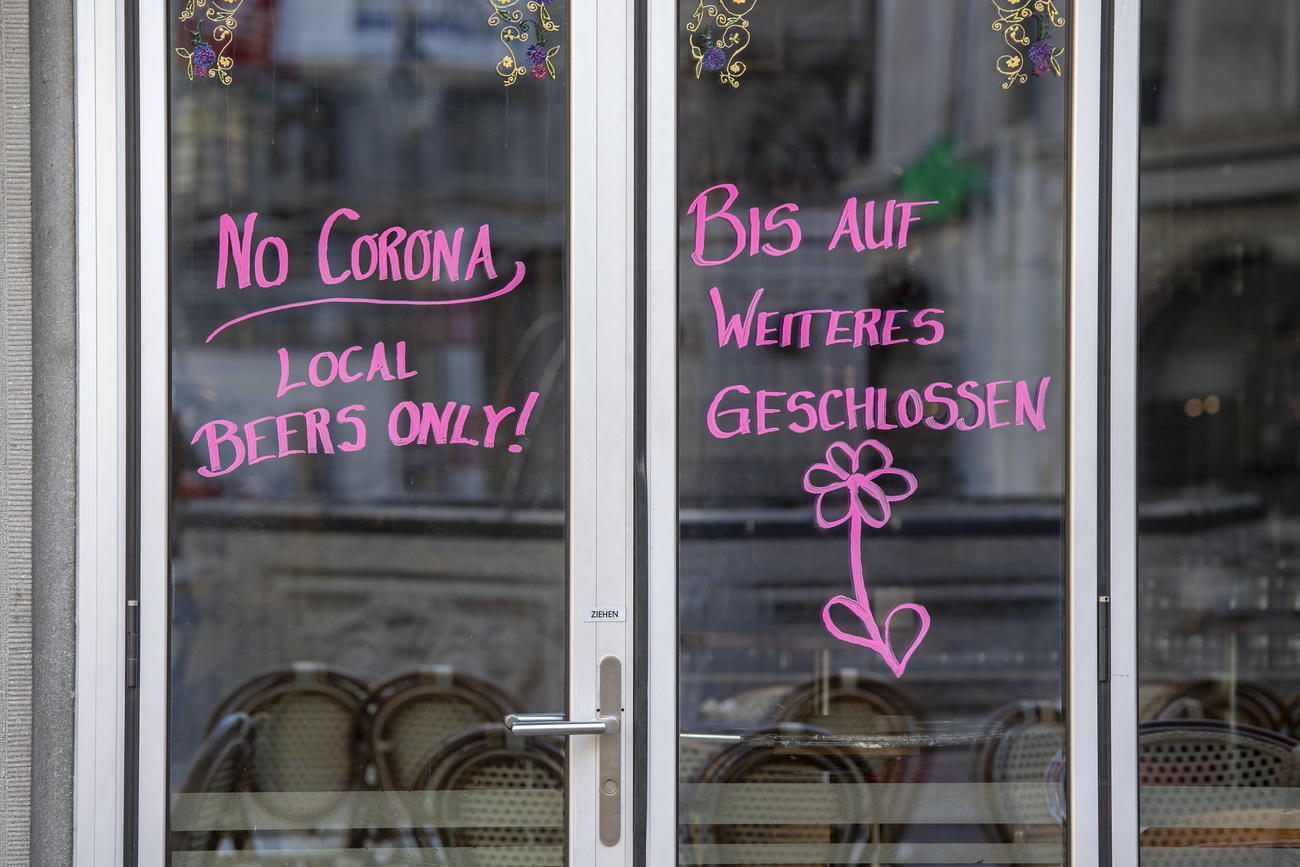 No Corona
Local
Beers only!
Bis auf
Weiteres
geschlossen
ZIEHEN